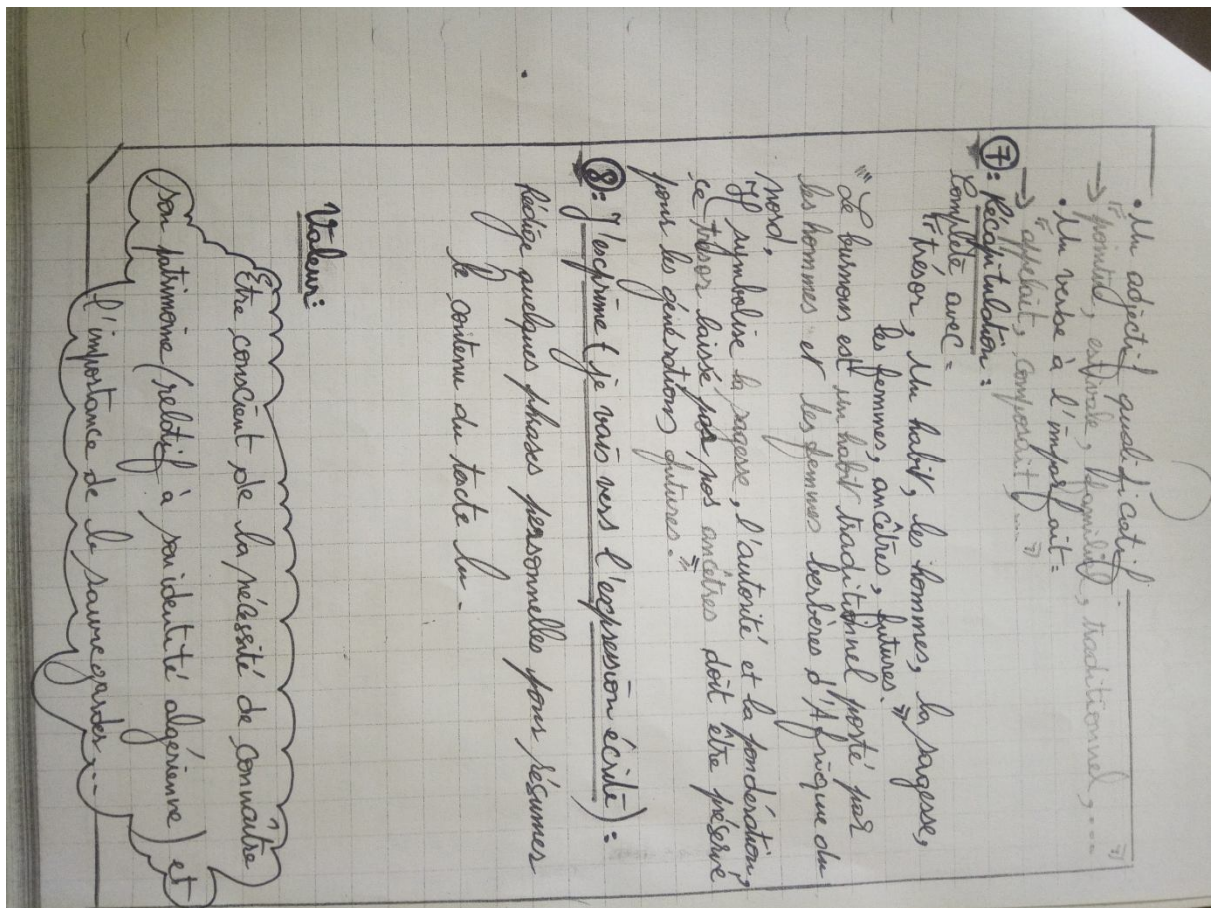 • Un adjectif qualificatif :
→ " pointu, estivale, traditionnel, .... "
• Un verbe à l'imparfait =
→ " appelait, composait .... "
⑦: Récapitulation :
Complète avec =
" trésor, Un habit, les hommes, la sagesse,
les femmes, ancêtres, futures. "
" Le burnous est un habit traditionnel porté par
les hommes et les femmes berbères d'Afrique du
nord.
Il symbolise la sagesse, l'autorité et la pondération,
ce trésor laissé par nos ancêtres doit être préservé
pour les générations futures. "
⑧: J'exprime (je vais vers l'expression écrite) :
Rédige quelques phases personnelles pour résumer
le contenu du texte lu.
Valeur :
Etre conscient de la nécessité de connaître
son patrimoine (relatif à son identité algérienne) et
l'importance de le sauvegarder...